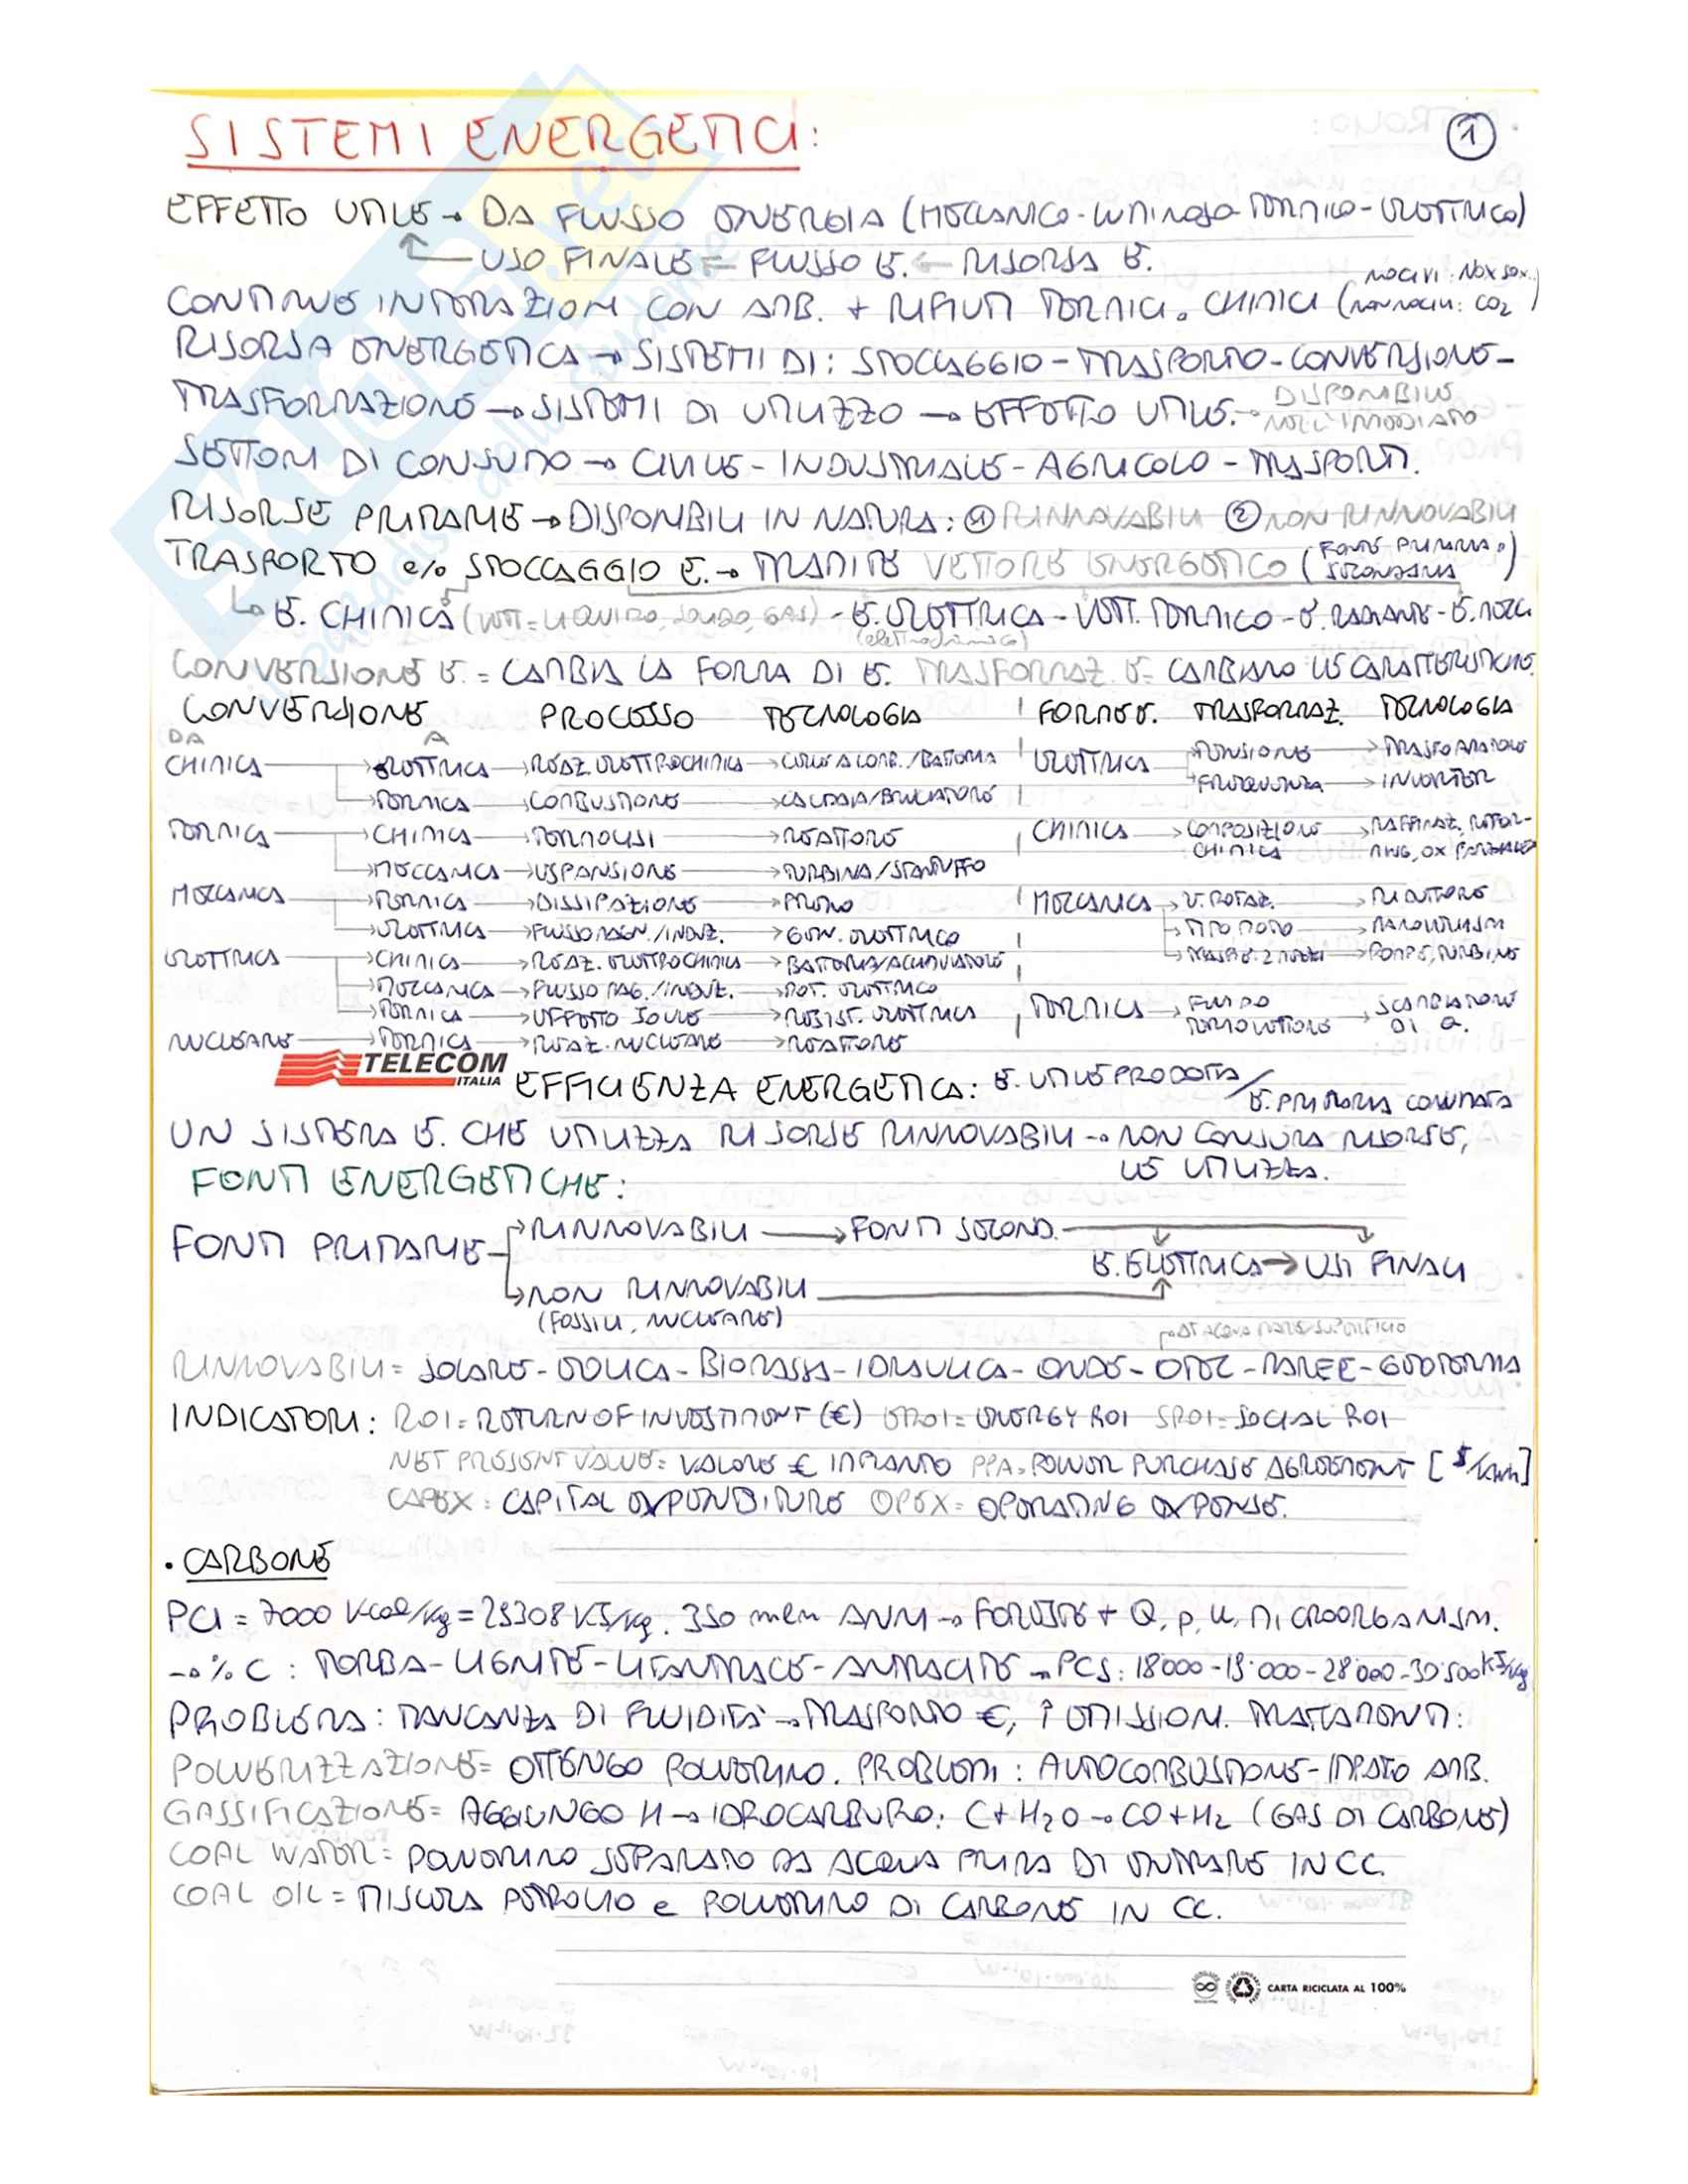 SISTEMI ENERGETICI:
1
EFFETTO UTILE → DA FLUSSO ENERGIA (MECCANICO-LUMINOSO-TERMICO-ELETTRICO)
USO FINALE ← FLUSSO E. ← RISORSA E.
CONTINUE INTERAZIONI CON AMB. + RIFIUTI TERMICI e CHIMICI (NOCIVI: NOx SOx.. NON NOCIVI: CO2)
RISORSA ENERGETICA → SISTEMI DI: STOCCAGGIO-TRASPORTO-CONVERSIONE-
TRASFORMAZIONE → SISTEMI DI UTILIZZO → EFFETTO UTILE. → DISPONIBILE NELL'IMMEDIATO
SETTORI DI CONSUMO → CIVILE - INDUSTRIALE - AGRICOLO - TRASPORTI.
RISORSE PRIMARIE → DISPONIBILI IN NATURA: ① RINNOVABILI ② NON RINNOVABILI
TRASPORTO e/o STOCCAGGIO E. → TRAMITE VETTORE ENERGETICO (FONTE PRIMARIA o SECONDARIA)
↳ E. CHIMICA (VETT = LIQUIDO, SOLIDO, GAS) - E. ELETTRICA - VETT. TERMICO - E. RADIANTE - E. MECC.
(elettrochimico)
CONVERSIONE E. = CAMBIA LA FORMA DI E. TRASFORMAZ. E = CAMBIANO LE CARATTERISTICHE.
CONVERSIONE PROCESSO TECNOLOGIA | FORME E. TRASFORMAZ. TECNOLOGIA
DA A
CHIMICA → ELETTRICA → REAZ. ELETTROCHIMICA → CELLE A COMB. / BATTERIA | ELETTRICA → TENSIONE → TRASFORMATORE
→ TERMICA → COMBUSTIONE → CALDAIA/BRUCIATORE | → FREQUENZA → INVERTER
TERMICA → CHIMICA → TERMOLISI → REATTORE | CHIMICA → COMPOSIZIONE CHIMICA → RAFFINAZ, REFORMING, OX PARZIALE
→ MECCANICA → ESPANSIONE → TURBINA/STANTUFFO
MECCANICA → TERMICA → DISSIPAZIONE → FRENO | MECCANICA → V. ROTAZ. → RIDUTTORE
→ ELETTRICA → FLUSSO MAGN./INDUZ. → GEN. ELETTRICO | → TIPO MOTO → MANOVELLISM
ELETTRICA → CHIMICA → REAZ. ELETTROCHIMICA → BATTERIA/ACCUMULATORE | → TRASFE. 2 MEZZI → POMPE, TURBINE
→ MECCANICA → FLUSSO MAG./INDUZ. → MOT. ELETTRICO
→ TERMICA → EFFETTO JOULE → RESIST. ELETTRICA | TERMICA → FLUIDO TERMOVETTORE → SCAMBIATORE DI Q.
NUCLEARE → TERMICA → REAZ. NUCLEARE → REATTORE
TELECOM ITALIA
EFFICIENZA ENERGETICA: E. UTILE PRODOTTA / E. PRIMARIA CONSUMATA
UN SISTEMA E. CHE UTILIZZA RISORSE RINNOVABILI → NON CONSUMA RISORSE,
LE UTILIZZA.
FONTI ENERGETICHE:
FONTI PRIMARIE → RINNOVABILI → FONTI SECOND.
E. ELETTRICA → USI FINALI
→ NON RINNOVABILI
(FOSSILI, NUCLEARE)
ΔT ACQUA MARE SUPERFICIO
RINNOVABILI = SOLARE - EOLICA - BIOMASSA - IDRAULICA - ONDE - OTEC - MAREE - GEOTERMIA
INDICATORI: ROI = RETURN OF INVESTIMENT (€) EROI = ENERGY ROI SROI = SOCIAL ROI
NET PRESENT VALUE = VALORE € IMPIANTO PPA = POWER PURCHASE AGREEMENT [$/kWh]
CAPEX = CAPITAL EXPENDITURE OPEX = OPERATING EXPENSE.
• CARBONE
PCI = 7000 Kcal/kg = 29308 KJ/kg. 350 mln ANNI → FORESTE + Q, p, u, MICROORGANISM.
→ % C : TORBA - LIGNITE - LITANTRACE - ANTRACITE → PCS: 18'000 - 19'000 - 28'000 - 30'500 KJ/kg
PROBLEMA: MANCANZA DI FLUIDITÀ → TRASPORTO €, ↑ EMISSIONI. TRATTAMENTI:
POLVERIZZAZIONE = OTTENGO POLVERINO. PROBLEMI: AUTOCOMBUSTIONE - IMPATO AMB.
GASSIFICAZIONE = AGGIUNGO H → IDROCARBURO: C + H2O → CO + H2 (GAS DI CARBONE)
COAL WATER = POLVERINO SEPARATO DA ACQUA PRIMA DI ENTRARE IN CC.
COAL OIL = MISCELA PETROLIO e POLVERINO DI CARBONE IN CC.
CARTA RICICLATA AL 100%